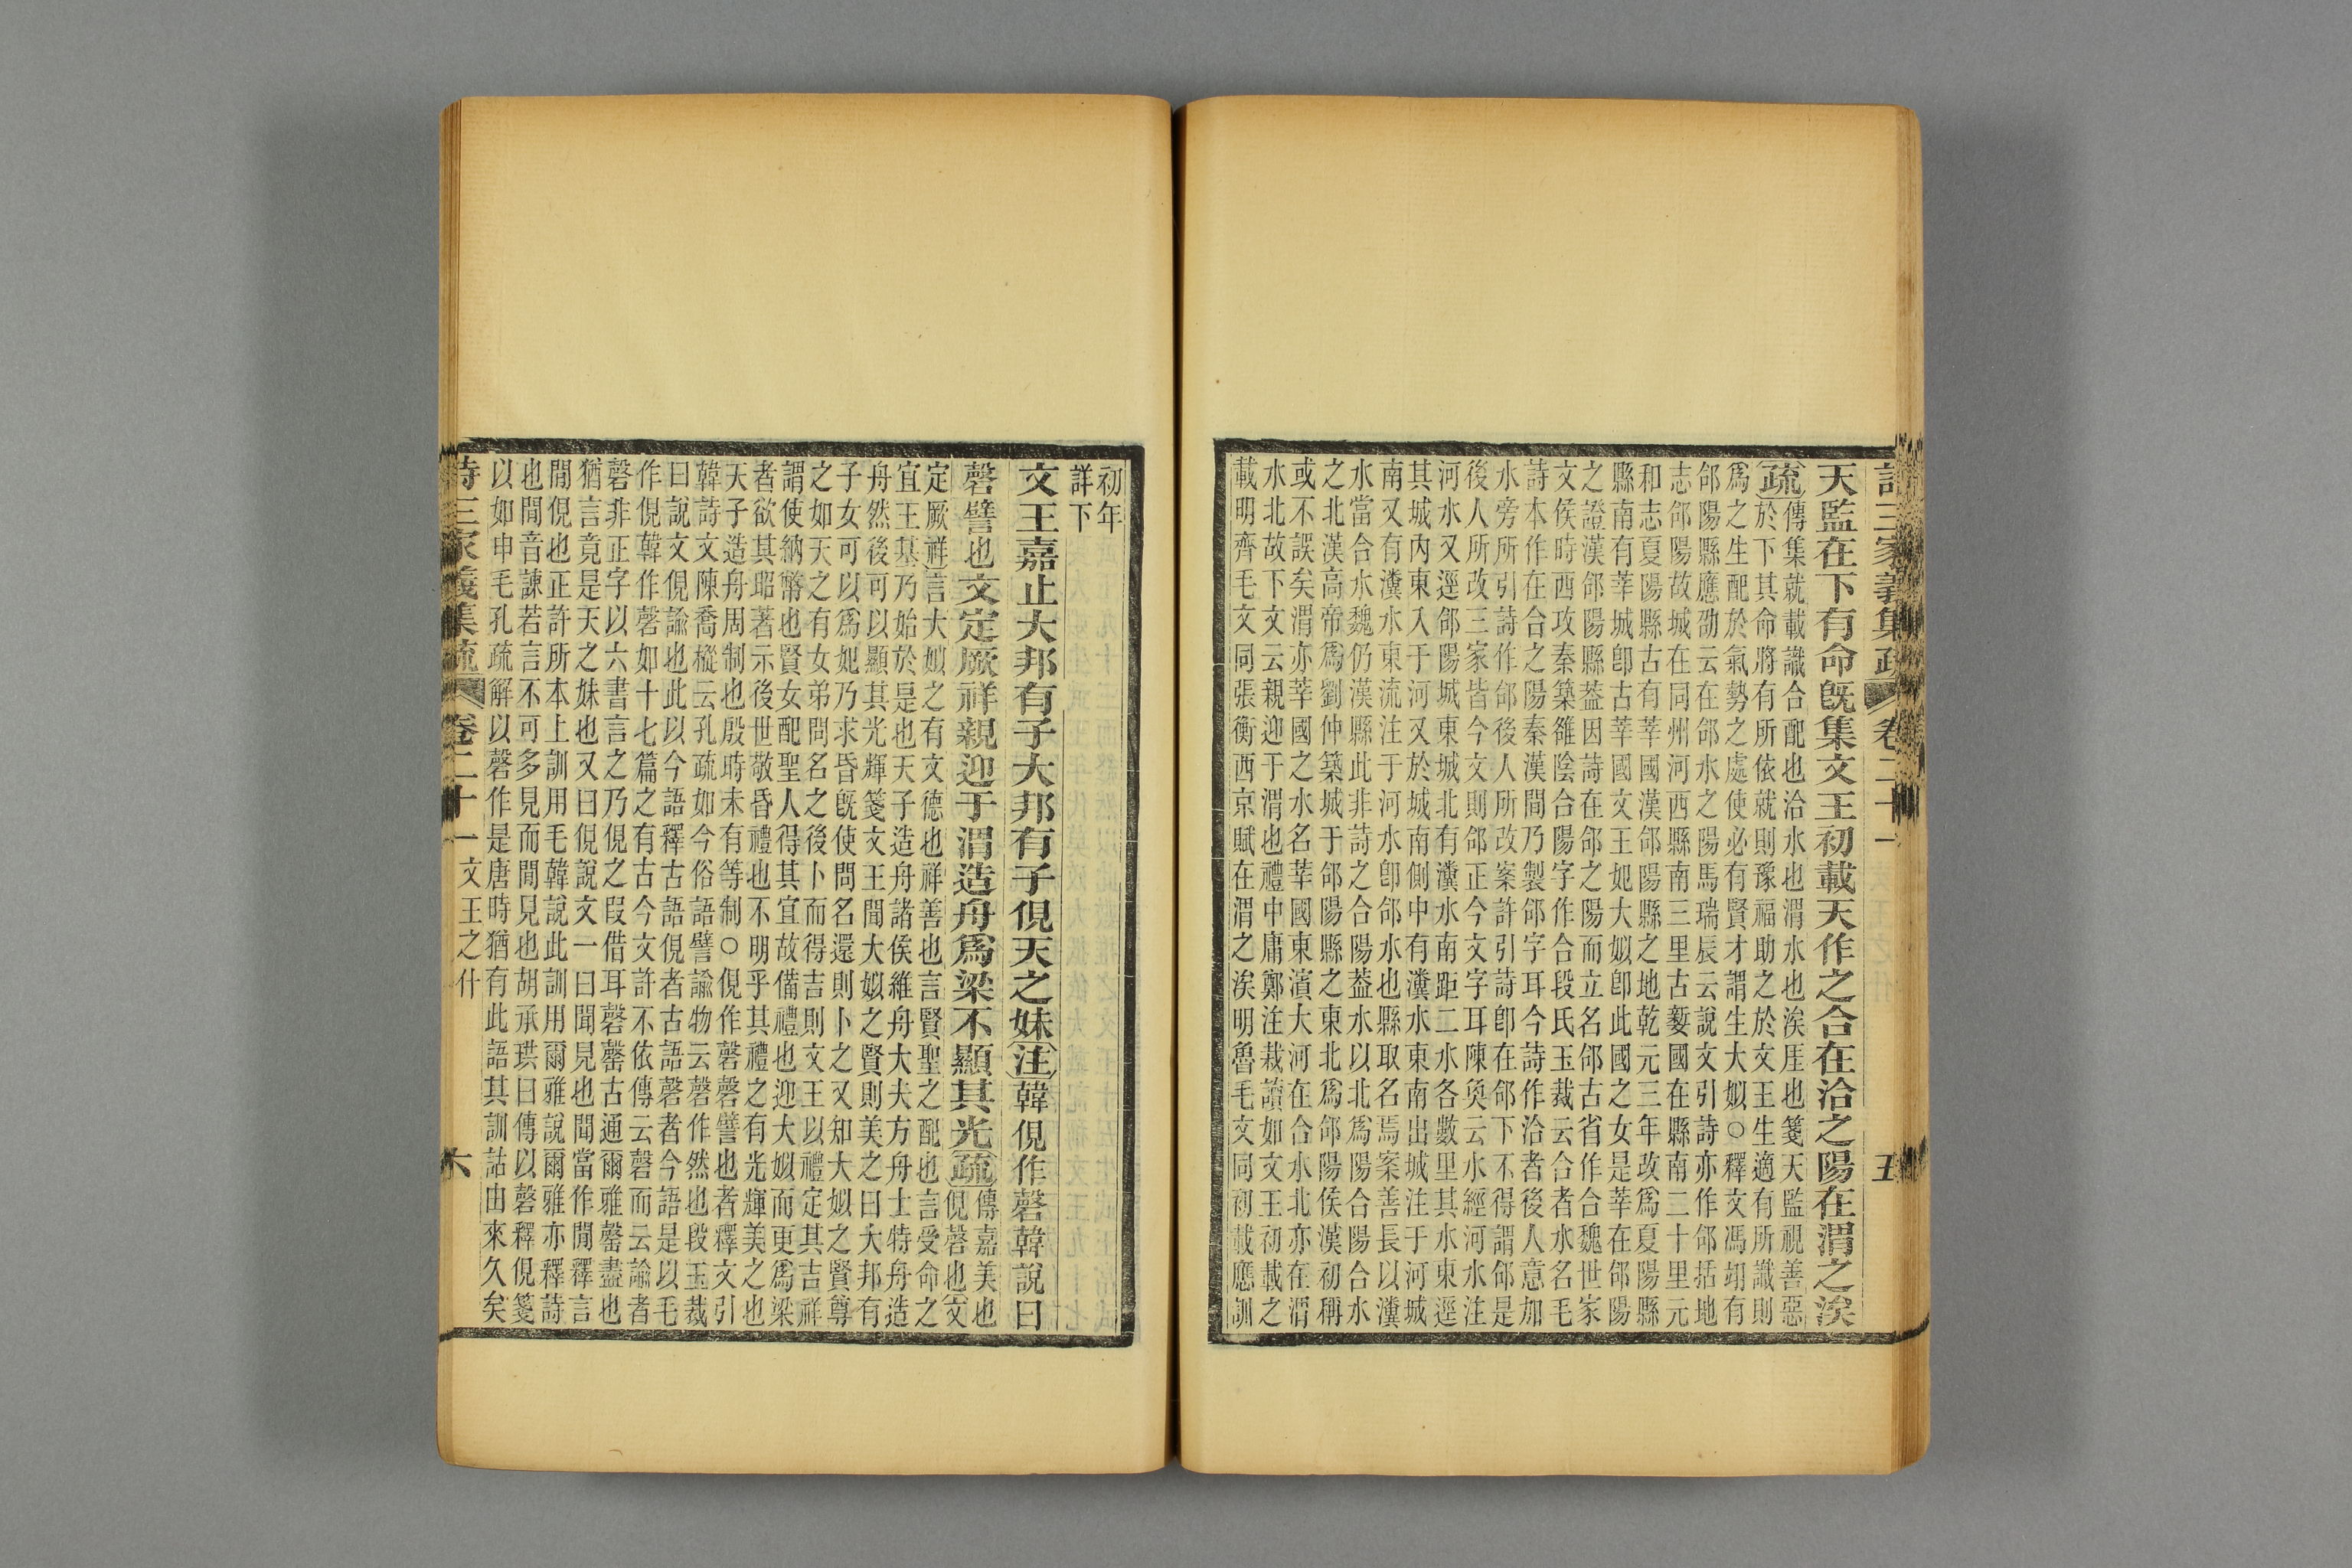 詩三家義集疏 卷二十一 五
天監在下有命既集文王初載天作之合在洽之陽在渭之涘
疏傳集就載識合配也洽水也渭水也涘厓也箋天監視善惡
於下其命將有所依就則豫福助之於文王生適有所識則
爲之生配於氣勢之處使必有賢才謂生大姒○釋文馮翊有
郃陽縣應劭云在郃水之陽馬瑞辰云說文引詩亦作郃括地
志郃陽故城在同州河西縣南三里古㜪國在縣南二十里元
和志夏陽縣古有莘國漢郃陽縣之地乾元三年改爲夏陽縣
縣南有莘城卽古莘國文王妃大姒卽此國之女是莘在郃陽
之證漢郃陽縣葢因詩在郃之陽而立名郃古省作合魏世家
文侯時西攻秦築雒陰合陽字作合段氏玉裁云合者水名毛
詩本作在合之陽秦漢閒乃製郃字耳今詩作洽者後人意加
水旁所引詩作郃後人所改案許引詩卽在郃下不得謂郃是
後人所改三家皆今文則郃正今文字耳陳奐云水經河水注
河水又逕郃陽城東城北有瀵水南距二水各數里其水東逕
其城內東入于河又於城南側中有瀵水東南出城注于河城
南又有瀵水東流注于河水卽郃水也縣取名焉案善長以瀵
水當合水魏仍漢縣此非詩之合陽葢水以北爲陽合陽合水
之北漢高帝爲劉仲築城于郃陽縣之東北爲郃陽侯漢初稱
或不誤矣渭亦莘國之水名莘國東濱大河在合水北亦在渭
水北故下文云親迎于渭也禮中庸鄭注栽讀如文王初載之
載明齊毛文同張衡西京賦在渭之涘明魯毛文同初載應訓
初年
詳下
文王嘉止大邦有子大邦有子俔天之妹注韓俔作磬韓說曰
磬譬也文定厥祥親迎于渭造舟爲梁不顯其光疏傳嘉美也
俔磬也文
定厥祥言大姒之有文德也祥善也言賢聖之配也言受命之
宜王基乃始於是也天子造舟諸侯維舟大夫方舟士特舟造
舟然後可以顯其光輝箋文王聞大姒之賢則美之曰大邦有
子女可以爲妃乃求昏旣使問名還則卜之又知大姒之賢尊
之如天之有女弟問名之後卜而得吉則文王以禮定其吉祥
謂使納幣也賢女配聖人得其宜故備禮也迎大姒而更爲梁
者欲其昭著示後世敬昏禮也不明乎其禮之有光輝美之也
天子造舟周制也殷時未有等制○俔作磬磬譬也者釋文引
韓詩文陳喬樅云孔疏如今俗語譬諭物云磬作然也段玉裁
曰說文俔諭也此以今語釋古語俔者古語磬者今語是以毛
作俔韓作磬如十七篇之有古今文許不依傳云磬而云諭者
磬非正字以六書言之乃俔之叚借耳磬罄古通爾雅罄盡也
猶言竟是天之妹也又曰俔說文一曰聞見也聞當作閒釋言
閒俔也正許所本上訓用毛韓說此訓用爾雅說爾雅亦釋詩
也閒音諫若言不可多見而閒見也胡承珙曰傳以磬釋俔箋
以如申毛孔疏解以磬作是唐時猶有此語其訓詁由來久矣
詩三家義集疏 卷二十一 文王之什 六